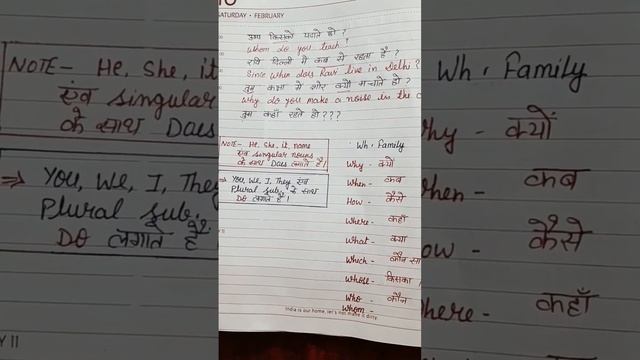 SATURDAY • FEBRUARY
तुम किसको पढ़ाते हो ?
Whom do you teach?
रवि दिल्ली में कब से रहता है ?
Since when does Ravi live in Delhi ?
तुम कक्षा में शोर क्यों मचाते हो ?
Why do you make a noise in the
तुम कहाँ रहते हो ???
NOTE- He, She, it, name
एंव singular nouns
के साथ Does लगाते हैं।
⇒ You, We, I, They एंव
Plural sub. के साथ
DO लगाते हैं।
Wh. Family
Why - क्यों
When - कब
How - कैसे
Where - कहाँ
What - क्या
Which - कौन सा
Whose - किसका
Who - कौन
Whom -
India is our home, let's not make it dirty
NOTE- He, She, it,
एंव singular
के साथ Does
⇒ You, We, I, They
Plural sub.
DO लगाते हैं
Wh. Family
Why - क्यों
When - कब
How - कैसे
Where - कहाँ